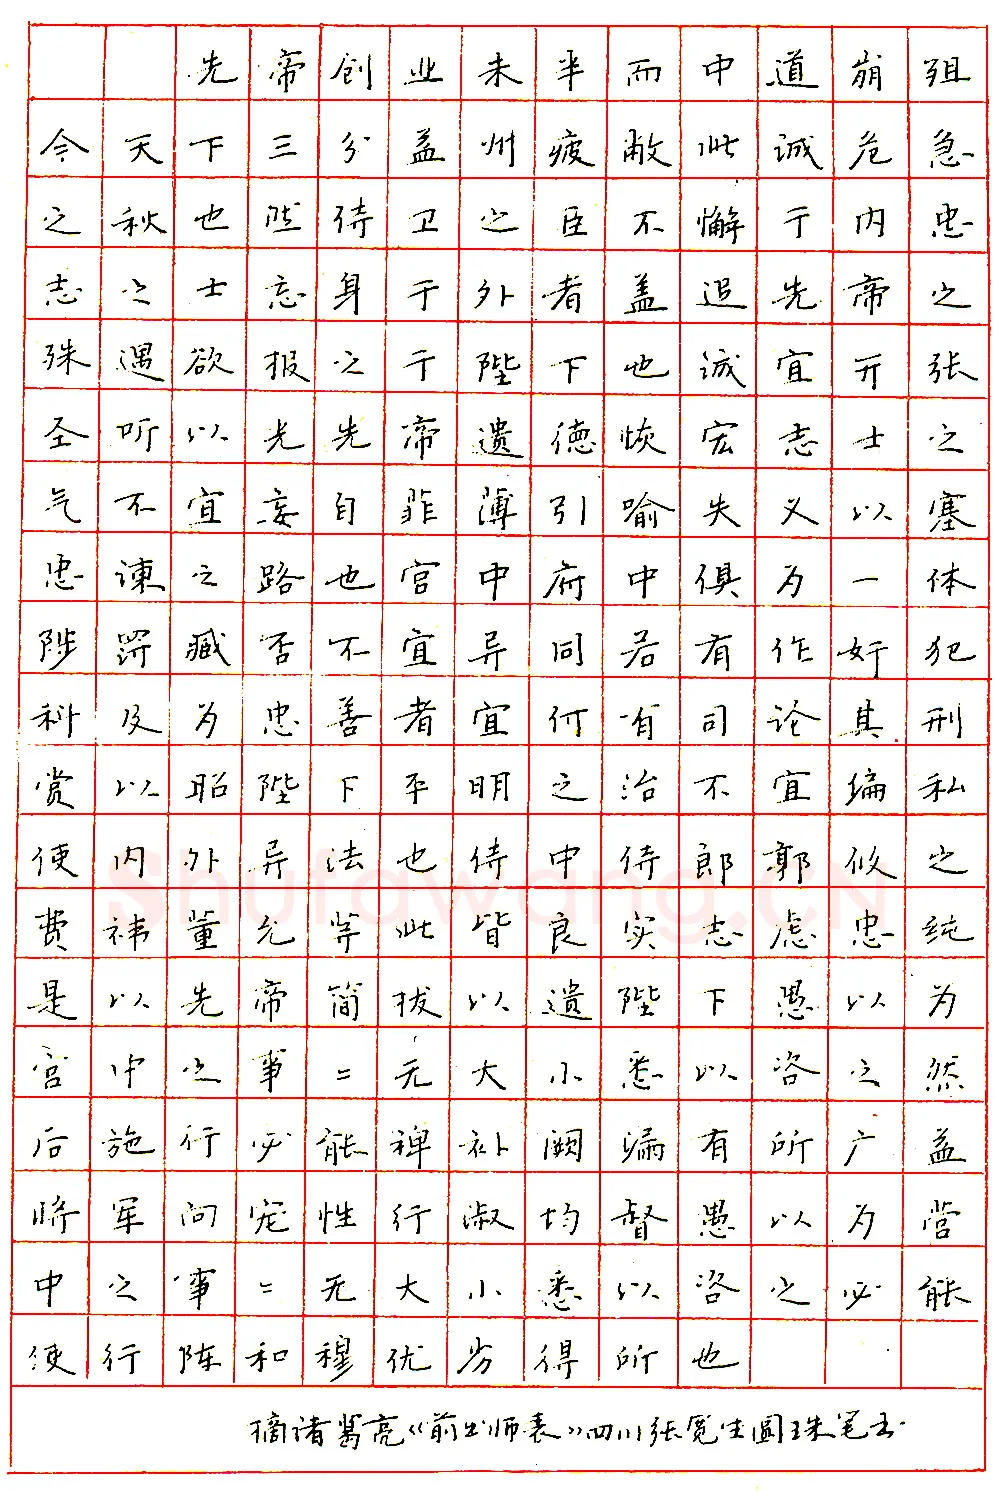 先帝创业未半而中道崩殂
今天下三分益州疲敝此诚危急
之秋也陛侍卫之臣不懈于内忠
志之士忘身于外者盖追先帝之
殊遇欲报之于陛下也诚宜开张
圣听以光先帝遗德恢宏志士之
气不宜妄自菲薄引喻失义以塞
忠谏之路也宫中府中俱为一体
陟罚臧否不宜异同若有作奸犯
科及为忠善者宜付有司论其刑
赏以昭陛下平明之治不宜偏私
使内外异法也侍中侍郎郭攸之
费祎董允等此皆良实志虑忠纯
是以先帝简拔以遗陛下愚以为
宫中之事=无大小悉以咨之然
后施行必能裨补阙漏有所广益
将军向宠性行淑均督愚以为营
中之事=无大小悉以咨之必能
使行陈和穆优劣得所也
摘诸葛亮《前出师表》四川张宽生圆珠笔书
Shufawang.CN